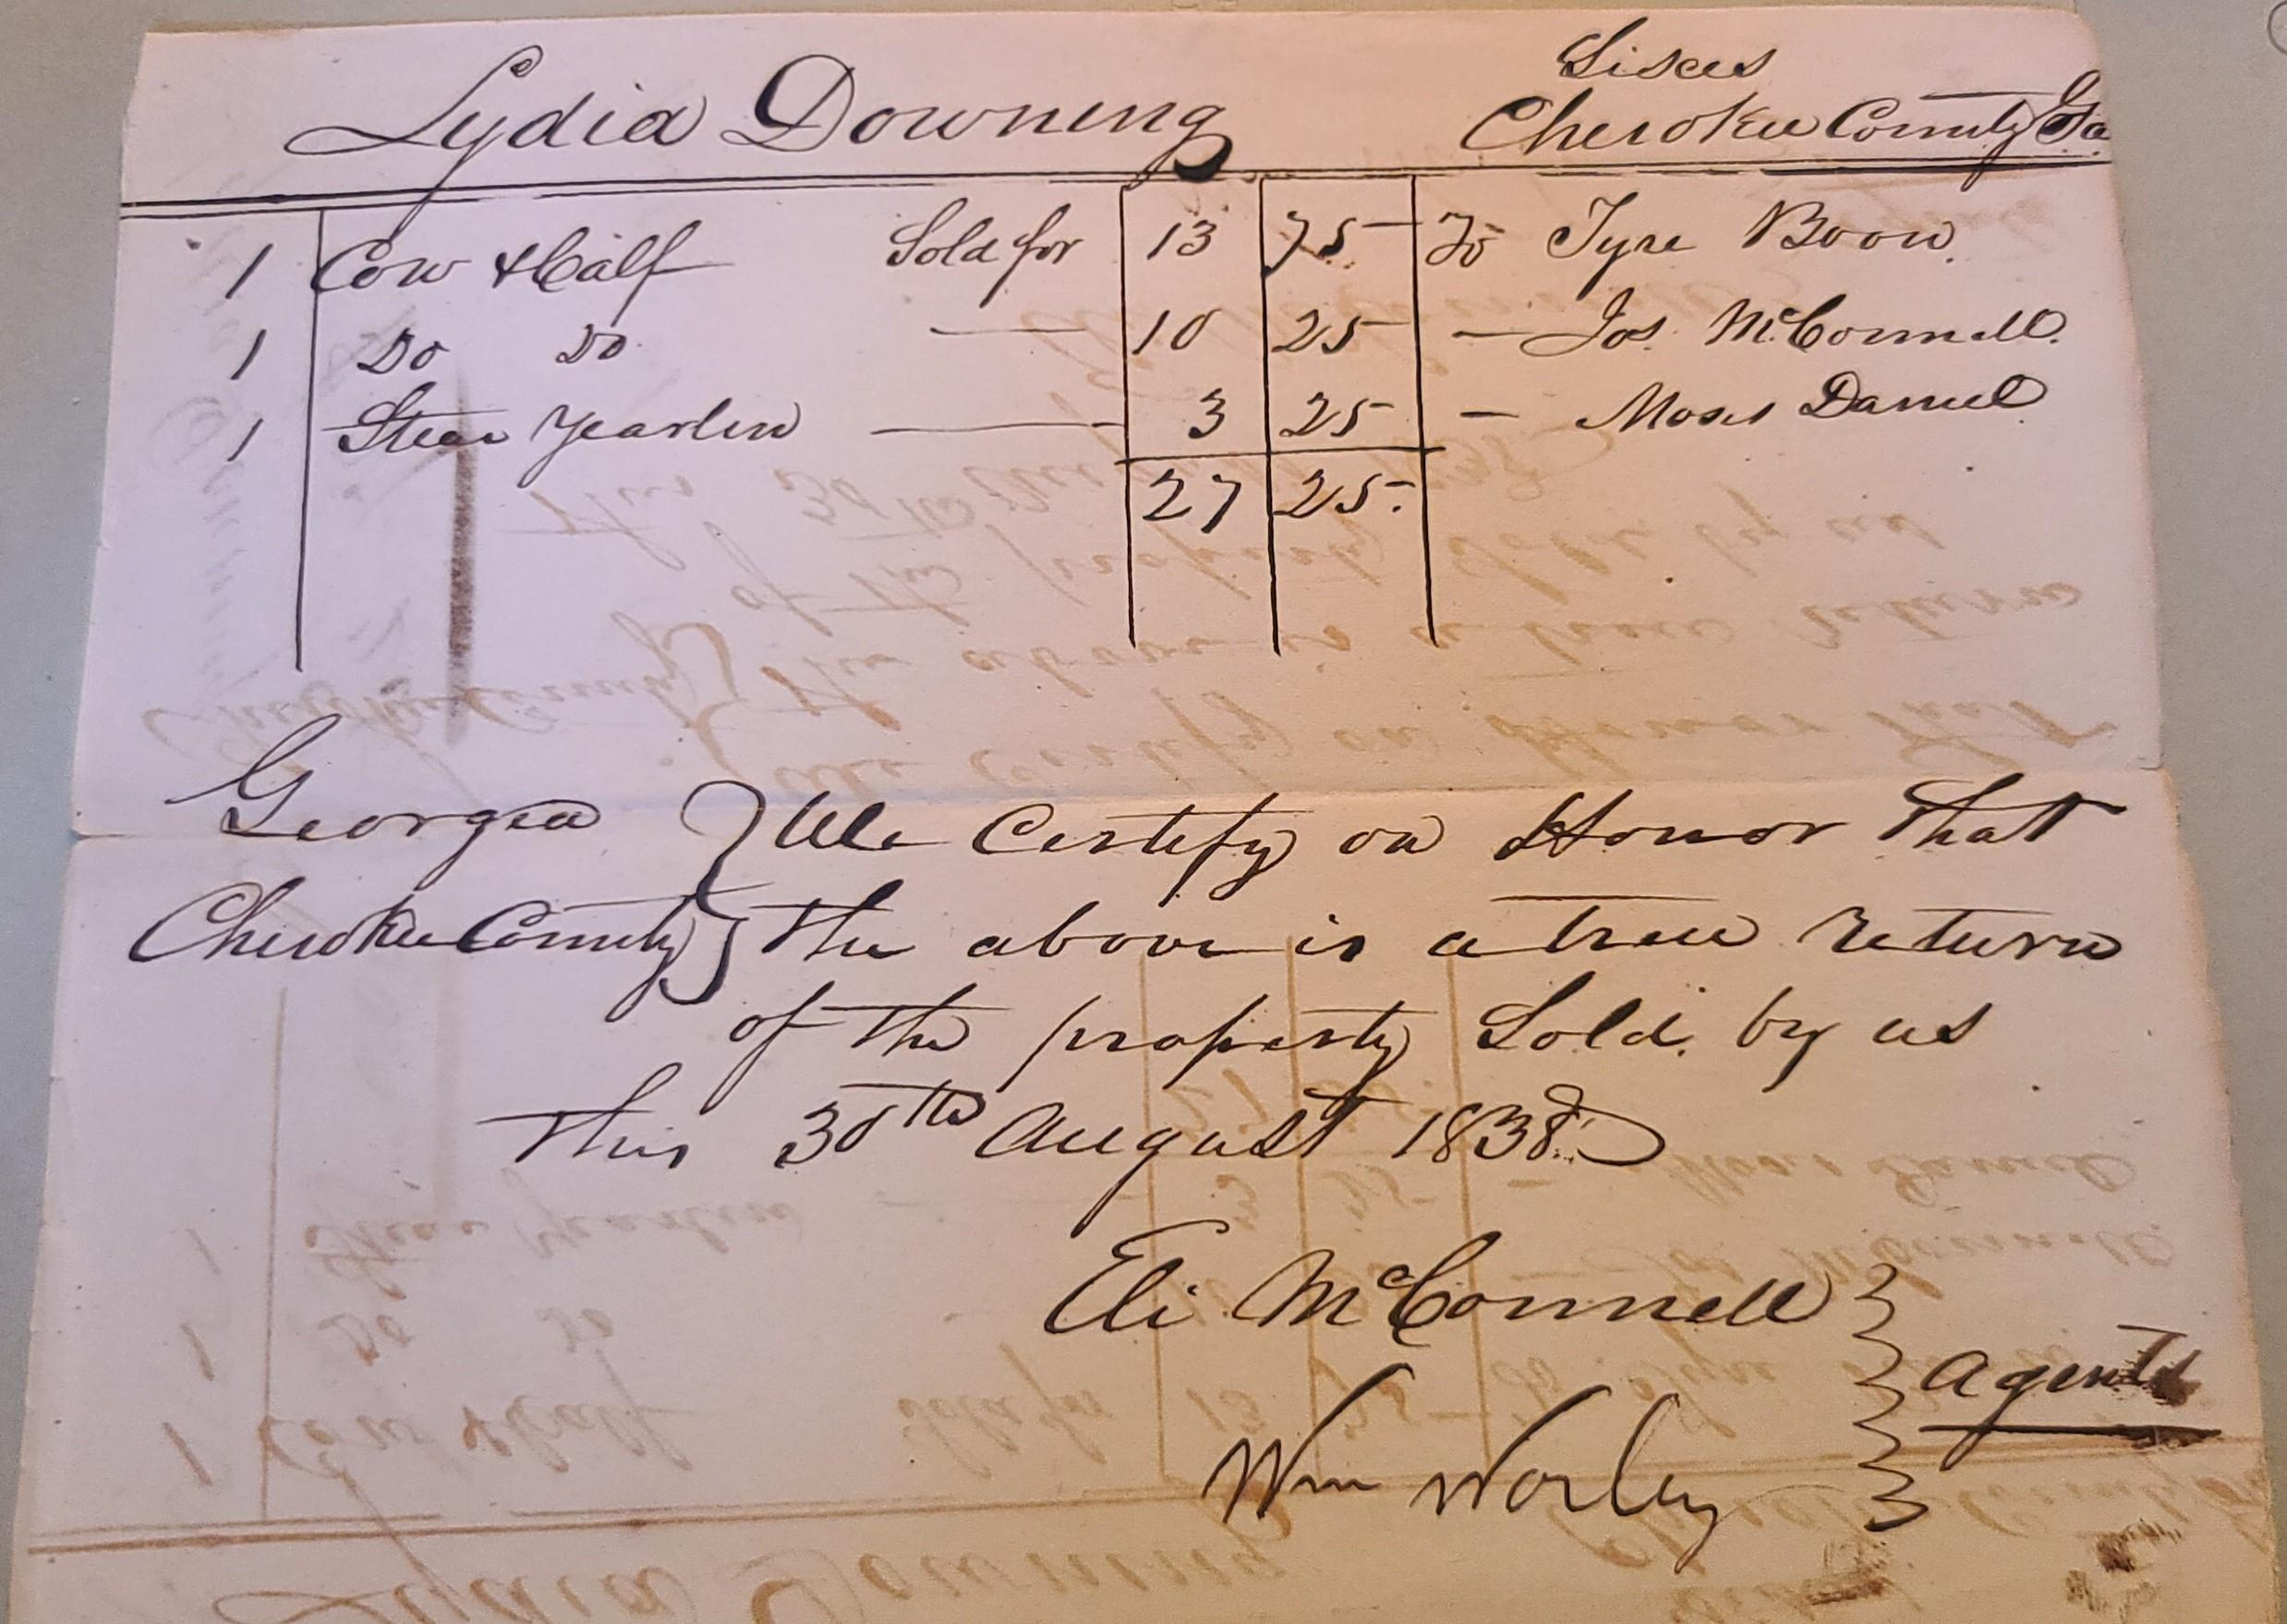 Lydia Downing
Cherokee County Ga
1 Cow & Calf Sold for 13 75 To Tyre Boon.
1 Do Do — 10 25 — Jos. McConnell.
1 Stear Yearlin — 3 25 — Moses Daniel
27 25.
Georgia } We Certify on Honor that
Cherokee County } the above is a true Return
of the property Sold by us
this 30th August 1838.
Eli McConnell }
Wm Worley } Agents